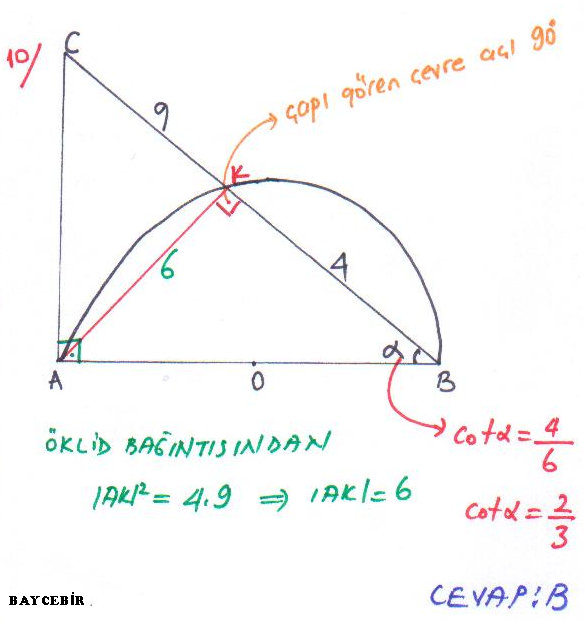 10/
C
9
çapı gören çevre açı 90°
K
6
4
α
A
O
B
ÖKLİD BAĞINTISINDAN
|AK|² = 4.9 ⇒ |AK| = 6
cotα = 4/6
cotα = 2/3
CEVAP: B
BAYCEBİR